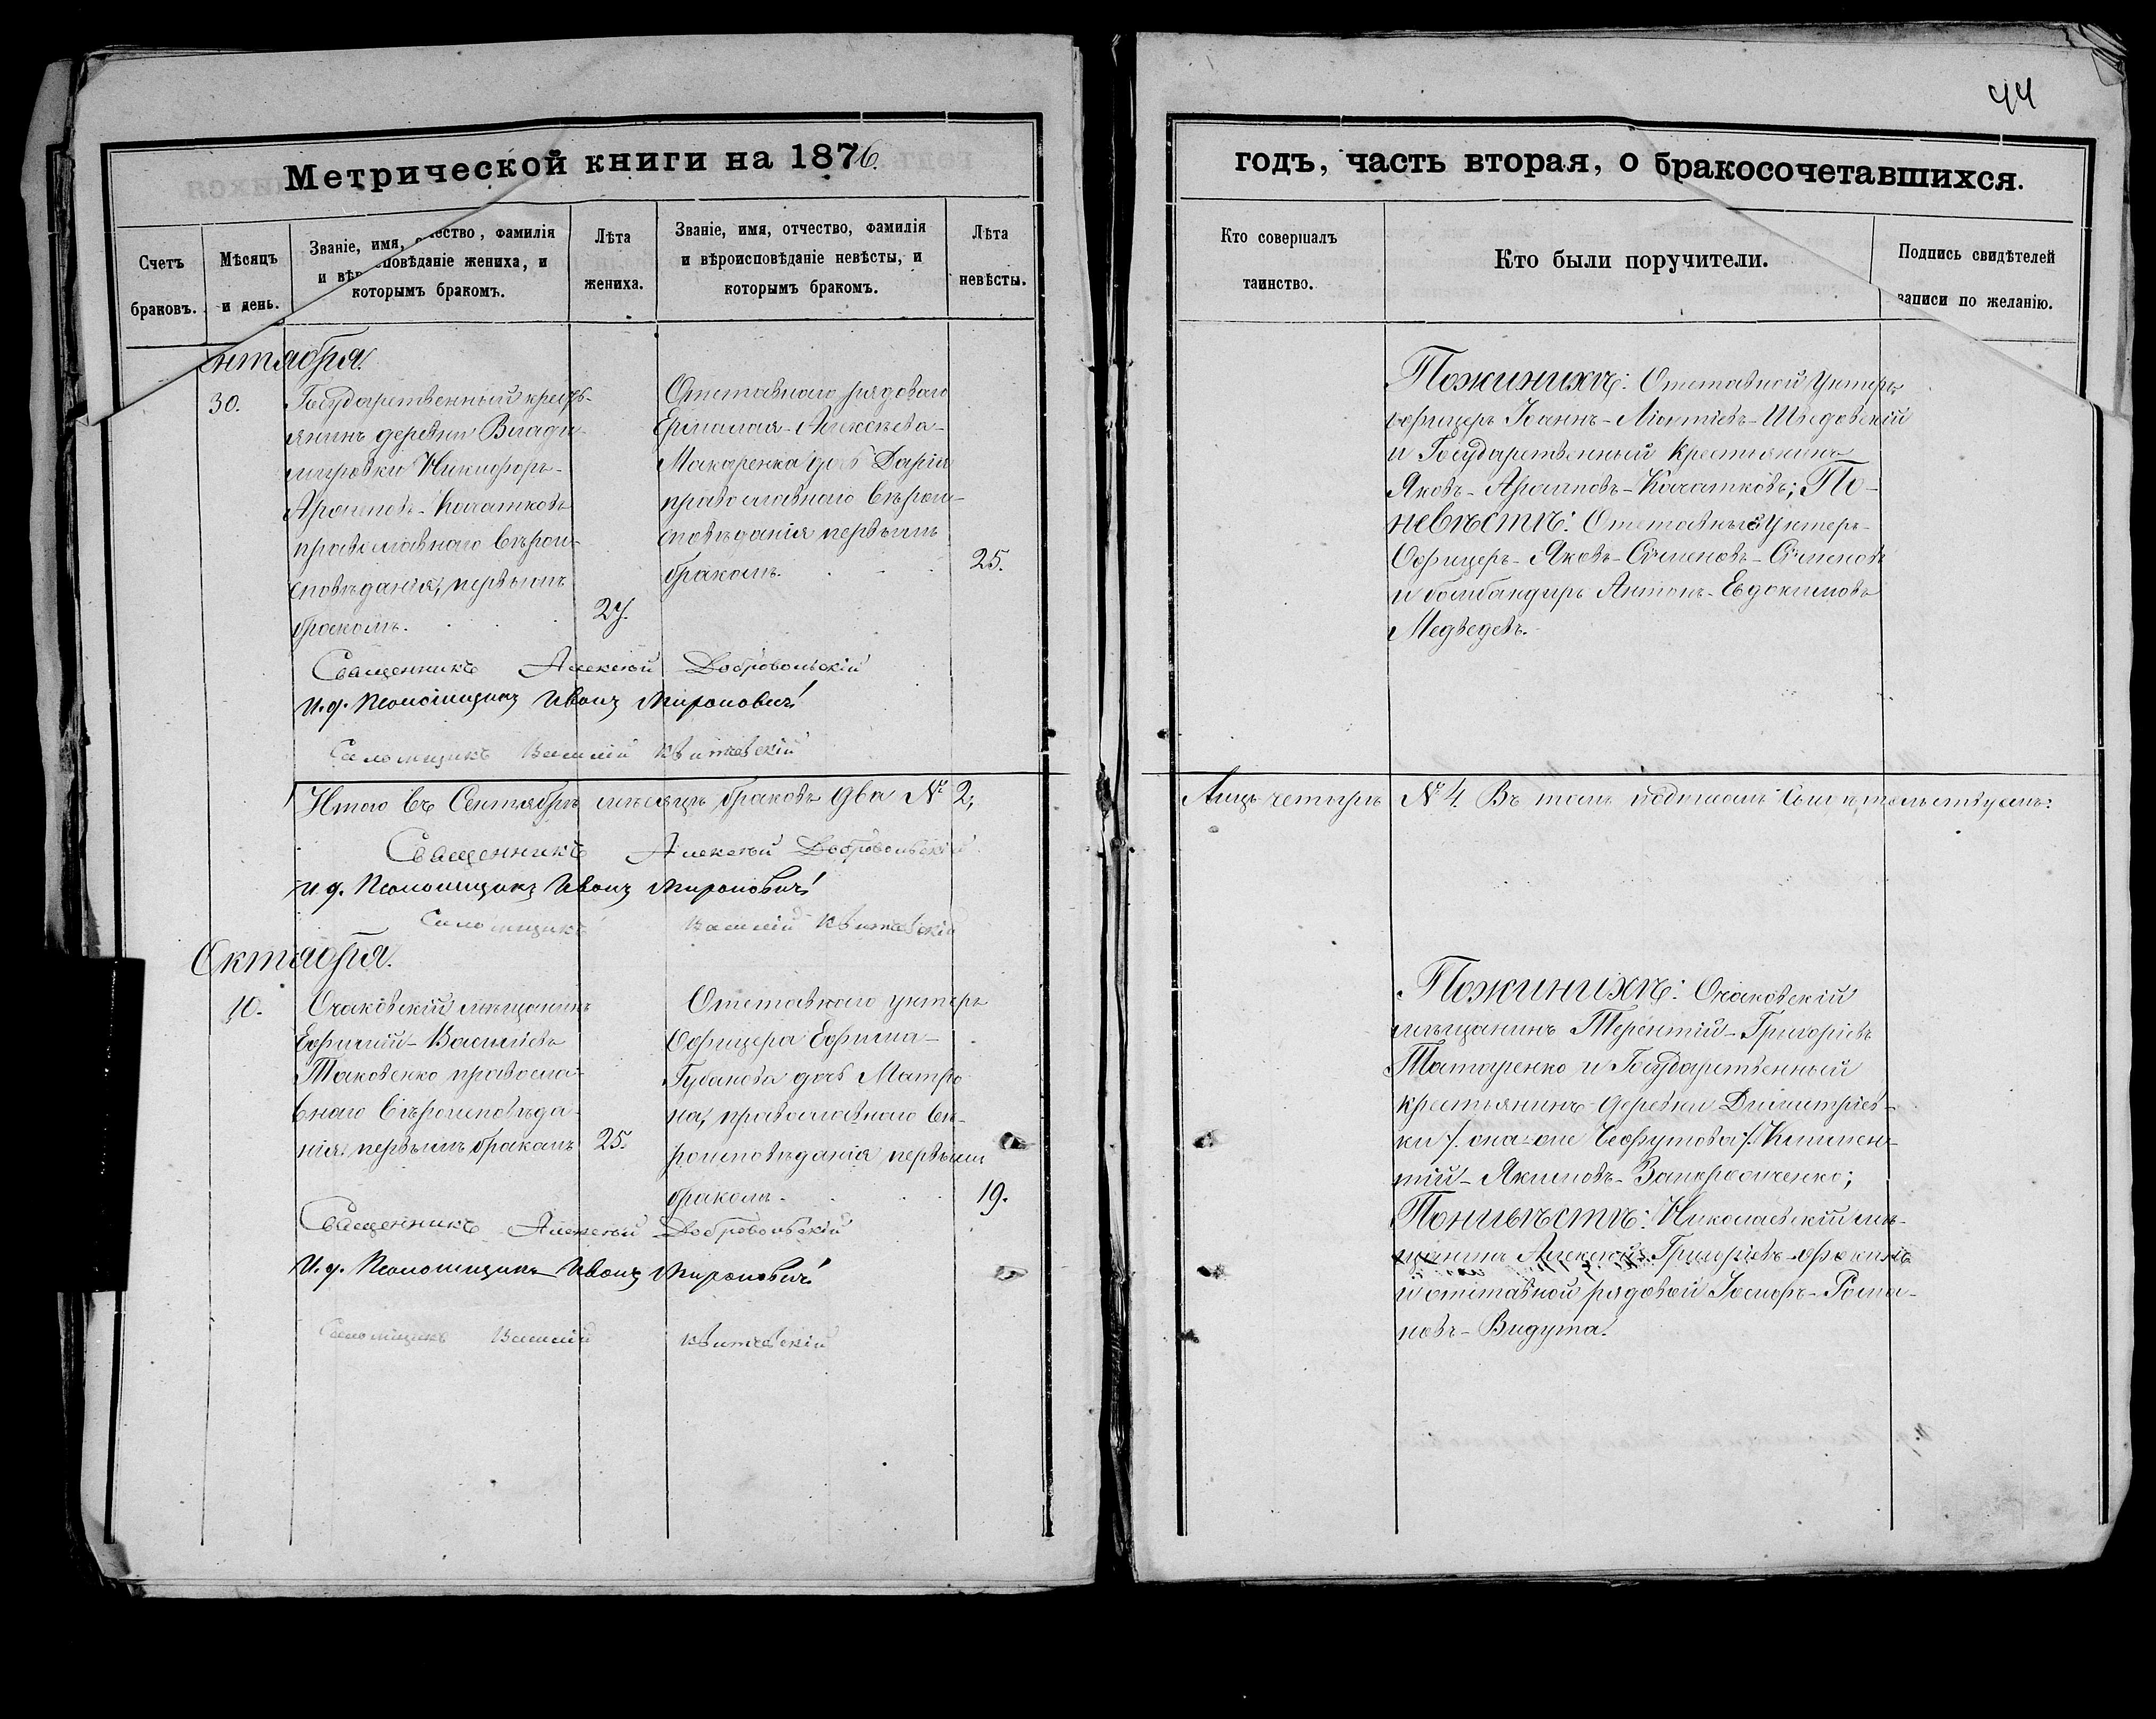 44
Метрической книги на 1876.
годъ, часть вторая, о бракосочетавшихся.
Счетъ браковъ.
Мѣсяцъ и день.
Званіе, имя, ество, фамилія
и вѣр сповѣданіе жениха, и
которымъ бракомъ.
Лѣта жениха.
Званіе, имя, отчество, фамилія
и вѣроисповѣданіе невѣсты, и
которымъ бракомъ.
Лѣта невѣсты.
Кто совершалъ таинство.
Кто были поручители.
Подпись свидѣтелей
записи по желанію.
нтября.
30.
Государственный кресть-
янинъ деревни Влади-
мировки Никифоръ-
православнаго вѣрои-
сповѣданія, первымъ
бракомъ. 27.
Отставнаго рядоваго
Ермолая-Алексѣева-
Макаренка дочь Дарія
православнаго вѣрои-
сповѣданія первымъ
бракомъ. 25.
Пожинихѣ: Отставной Унтеръ
офицеръ Іоаннъ-
и Государственный крестьянинъ
Яковъ- По-
невѣстѣ: Отставный Унтеръ-
Офицеръ-Яковъ-Сѣменовъ-Сѣменовъ
и бомбандиръ Антонъ-Евдокимовъ
Медведевъ.
Священникъ Алексѣй Добровольскій
И.д. Псаломщика Иванъ Мироновичъ
Псаломщикъ Василій
Итого въ Сентябрѣ мѣсяцѣ браковъ два № 2,
Лицъ четыре № 4. Въ томъ подписомъ свидѣтельствуемъ:
Священникъ Алексѣй Добровольскій
И.д. Псаломщика Иванъ Мироновичъ
Псаломщикъ Василій
Октября.
10.
Очаковскій мѣщанинъ
Ефимій-Васильевъ
Таковенко правосла-
внаго вѣроисповѣда-
нія первымъ бракомъ 25.
Отставнаго унтеръ
Офицера Ефима-
Губанова дочь Матро-
на, православнаго вѣ-
роисповѣданія первымъ
бракомъ. 19.
Пожинихѣ: Очаковскій
мѣщанинъ Терентій-Григорьевъ
Татаренко и Государственный
крестьянинъ деревни Димитріев-
ки /. она-же /. Климен-
тій-Якимовъ-
Поневѣстѣ: Николаевскій мѣ-
щанинъ Алексѣй Григорьевъ-
и отставной рядовой Іосифъ-Рома-
новъ-Видута.
Священникъ Алексѣй Добровольскій
И.д. Псаломщика Иванъ Мироновичъ
Псаломщикъ Василій